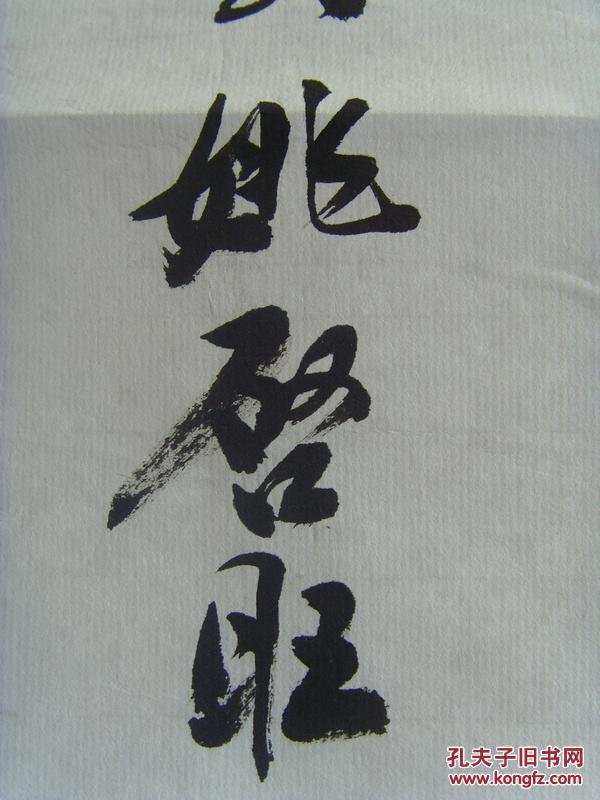 姚启旺
孔夫子旧书网
www.kongfz.com